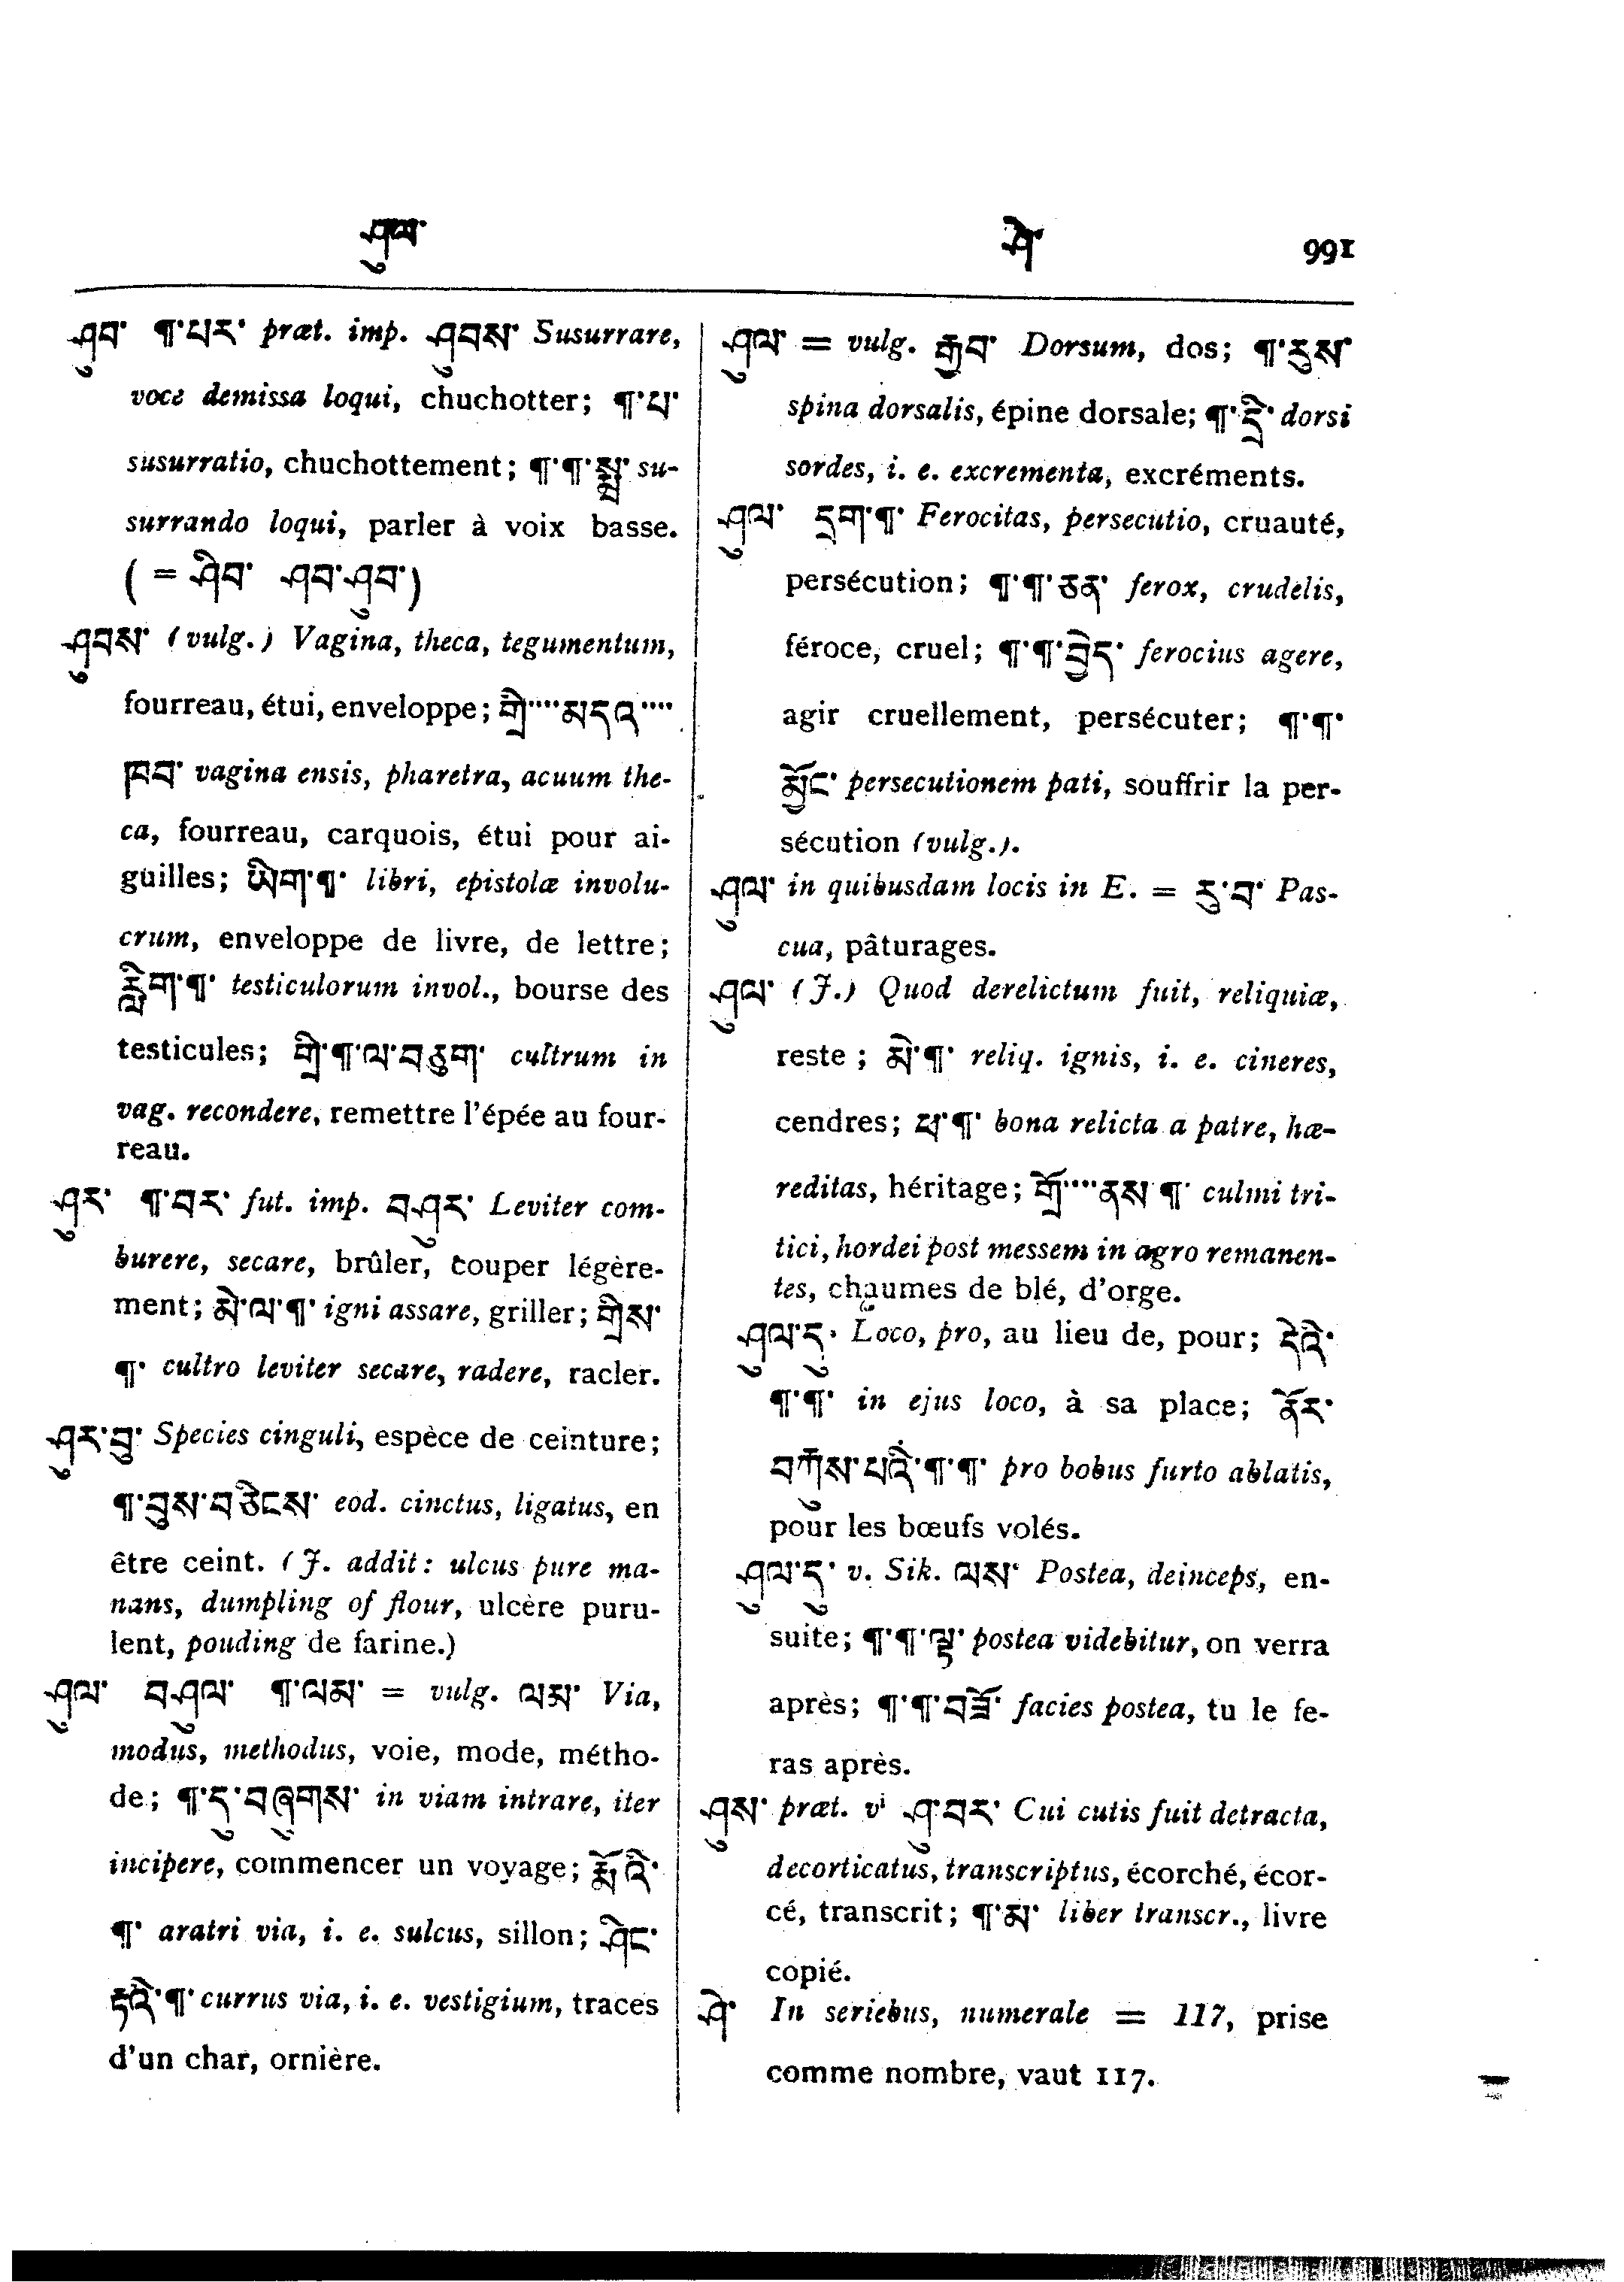 ཤུལ་
ཤེ་ 991
ཤུབ་ ¶་པར་ præt. imp. ཤུབས་ Susurrare,
voce demissa loqui, chuchotter; ¶་པ་
susurratio, chuchottement; ¶་¶་སྨྲ་ su-
surrando loqui, parler à voix basse.
( = ཤིབ་ ཤབ་ཤུབ་)
ཤུབས་ (vulg.) Vagina, theca, tegumentum,
fourreau, étui, enveloppe; གྲི་་་་མདའ་་་་
ཁབ་ vagina ensis, pharetra, acuum the-
ca, fourreau, carquois, étui pour ai-
guilles; ཡིག་¶་ libri, epistolæ involu-
crum, enveloppe de livre, de lettre;
རླིག་¶་ testiculorum invol., bourse des
testicules; གྲི་¶་ལ་བཅུག་ cultrum in
vag. recondere, remettre l'épée au four-
reau.
ཤུར་ ¶་བར་ fut. imp. བཤུར་ Leviter com-
burere, secare, brûler, couper légère-
ment; མེ་ལ་¶་ igni assare, griller; གྲིས་
¶་ cultro leviter secare, radere, racler.
ཤུར་བུ་ Species cinguli, espèce de ceinture;
¶་བུས་བཅིངས་ eod. cinctus, ligatus, en
être ceint. (J. addit: ulcus pure ma-
nans, dumpling of flour, ulcère puru-
lent, pouding de farine.)
ཤུལ་ བཤུལ་ ¶་ལམ་ = vulg. ལམ་ Via,
modus, methodus, voie, mode, métho-
de; ¶་དུ་བཞུགས་ in viam intrare, iter
incipere, commencer un voyage; རྨོའི་
¶་ aratri via, i. e. sulcus, sillon; ཤིང་
རྟའི་¶་ currus via, i. e. vestigium, traces
d'un char, ornière.
ཤུལ་ = vulg. རྒྱབ་ Dorsum, dos; ¶་རུས་
spina dorsalis, épine dorsale; ¶་དྲི་ dorsi
sordes, i. e. excrementa, excréments.
ཤུལ་ དྲག་¶་ Ferocitas, persecutio, cruauté,
persécution; ¶་¶་ཅན་ ferox, crudelis,
féroce, cruel; ¶་¶་བྱེད་ ferocius agere,
agir cruellement, persécuter; ¶་¶་
མྱོང་ persecutionem pati, souffrir la per-
sécution (vulg.).
ཤུལ་ in quibusdam locis in E. = རུ་བ་ Pas-
cua, pâturages.
ཤུལ་ (J.) Quod derelictum fuit, reliquiæ,
reste ; མེ་¶་ reliq. ignis, i. e. cineres,
cendres; ཕ་¶་ bona relicta a patre, hæ-
reditas, héritage; གྲོ་་་་ནས ¶་ culmi tri-
tici, hordei post messem in agro remanen-
tes, chaumes de blé, d'orge.
ཤུལ་དུ་ Loco, pro, au lieu de, pour; དེའི་
¶་¶་ in ejus loco, à sa place; ནོར་
བཀུས་པའི་¶་¶་ pro bobus furto ablatis,
pour les bœufs volés.
ཤུལ་དུ་ v. Sik. ལས་ Postea, deinceps, en-
suite; ¶་¶་ལྟ་ postea videbitur, on verra
après; ¶་¶་བཟོ་ facies postea, tu le fe-
ras après.
ཤུས་ præt. vⁱ ཤུ་བར་ Cui cutis fuit detracta,
decorticatus, transcriptus, écorché, écor-
cé, transcrit; ¶་མ་ liber transcr., livre
copié.
ཤེ་ In seriebus, numerale = 117, prise
comme nombre, vaut 117.